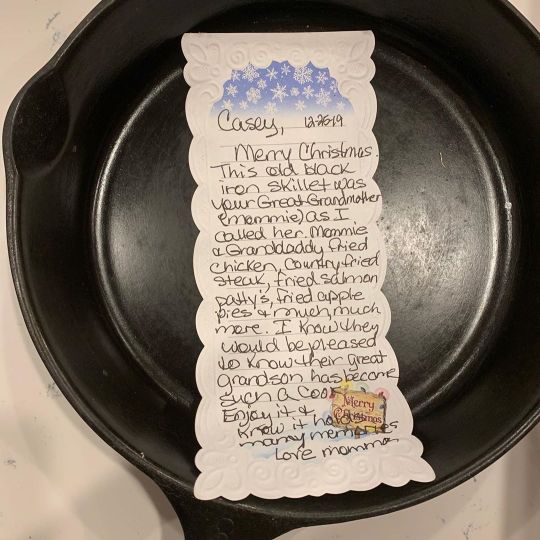 Casey, 12-25-19
Merry Christmas.
This old black
iron skillet was
your Great Grandmother
(mommie) as I
called her. Mommie
& Granddaddy fried
chicken, Country fried
steak, fried salmon
patty's, fried apple
pies & much, much
more. I know they
would be pleased
to know their great
grandson has become
such a Cook
Enjoy it &
Know it ho
many memories
Love momma
Merry
Christmas